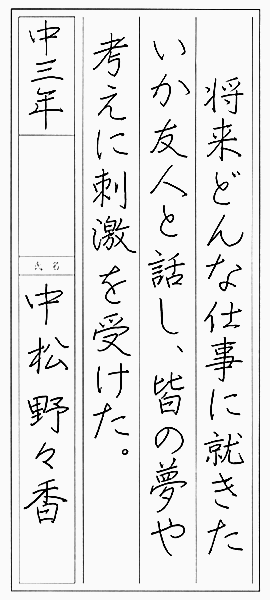 将来どんな仕事に就きた
いか友人と話し、皆の夢や
考えに刺激を受けた。
中三年
氏名
中松野々香